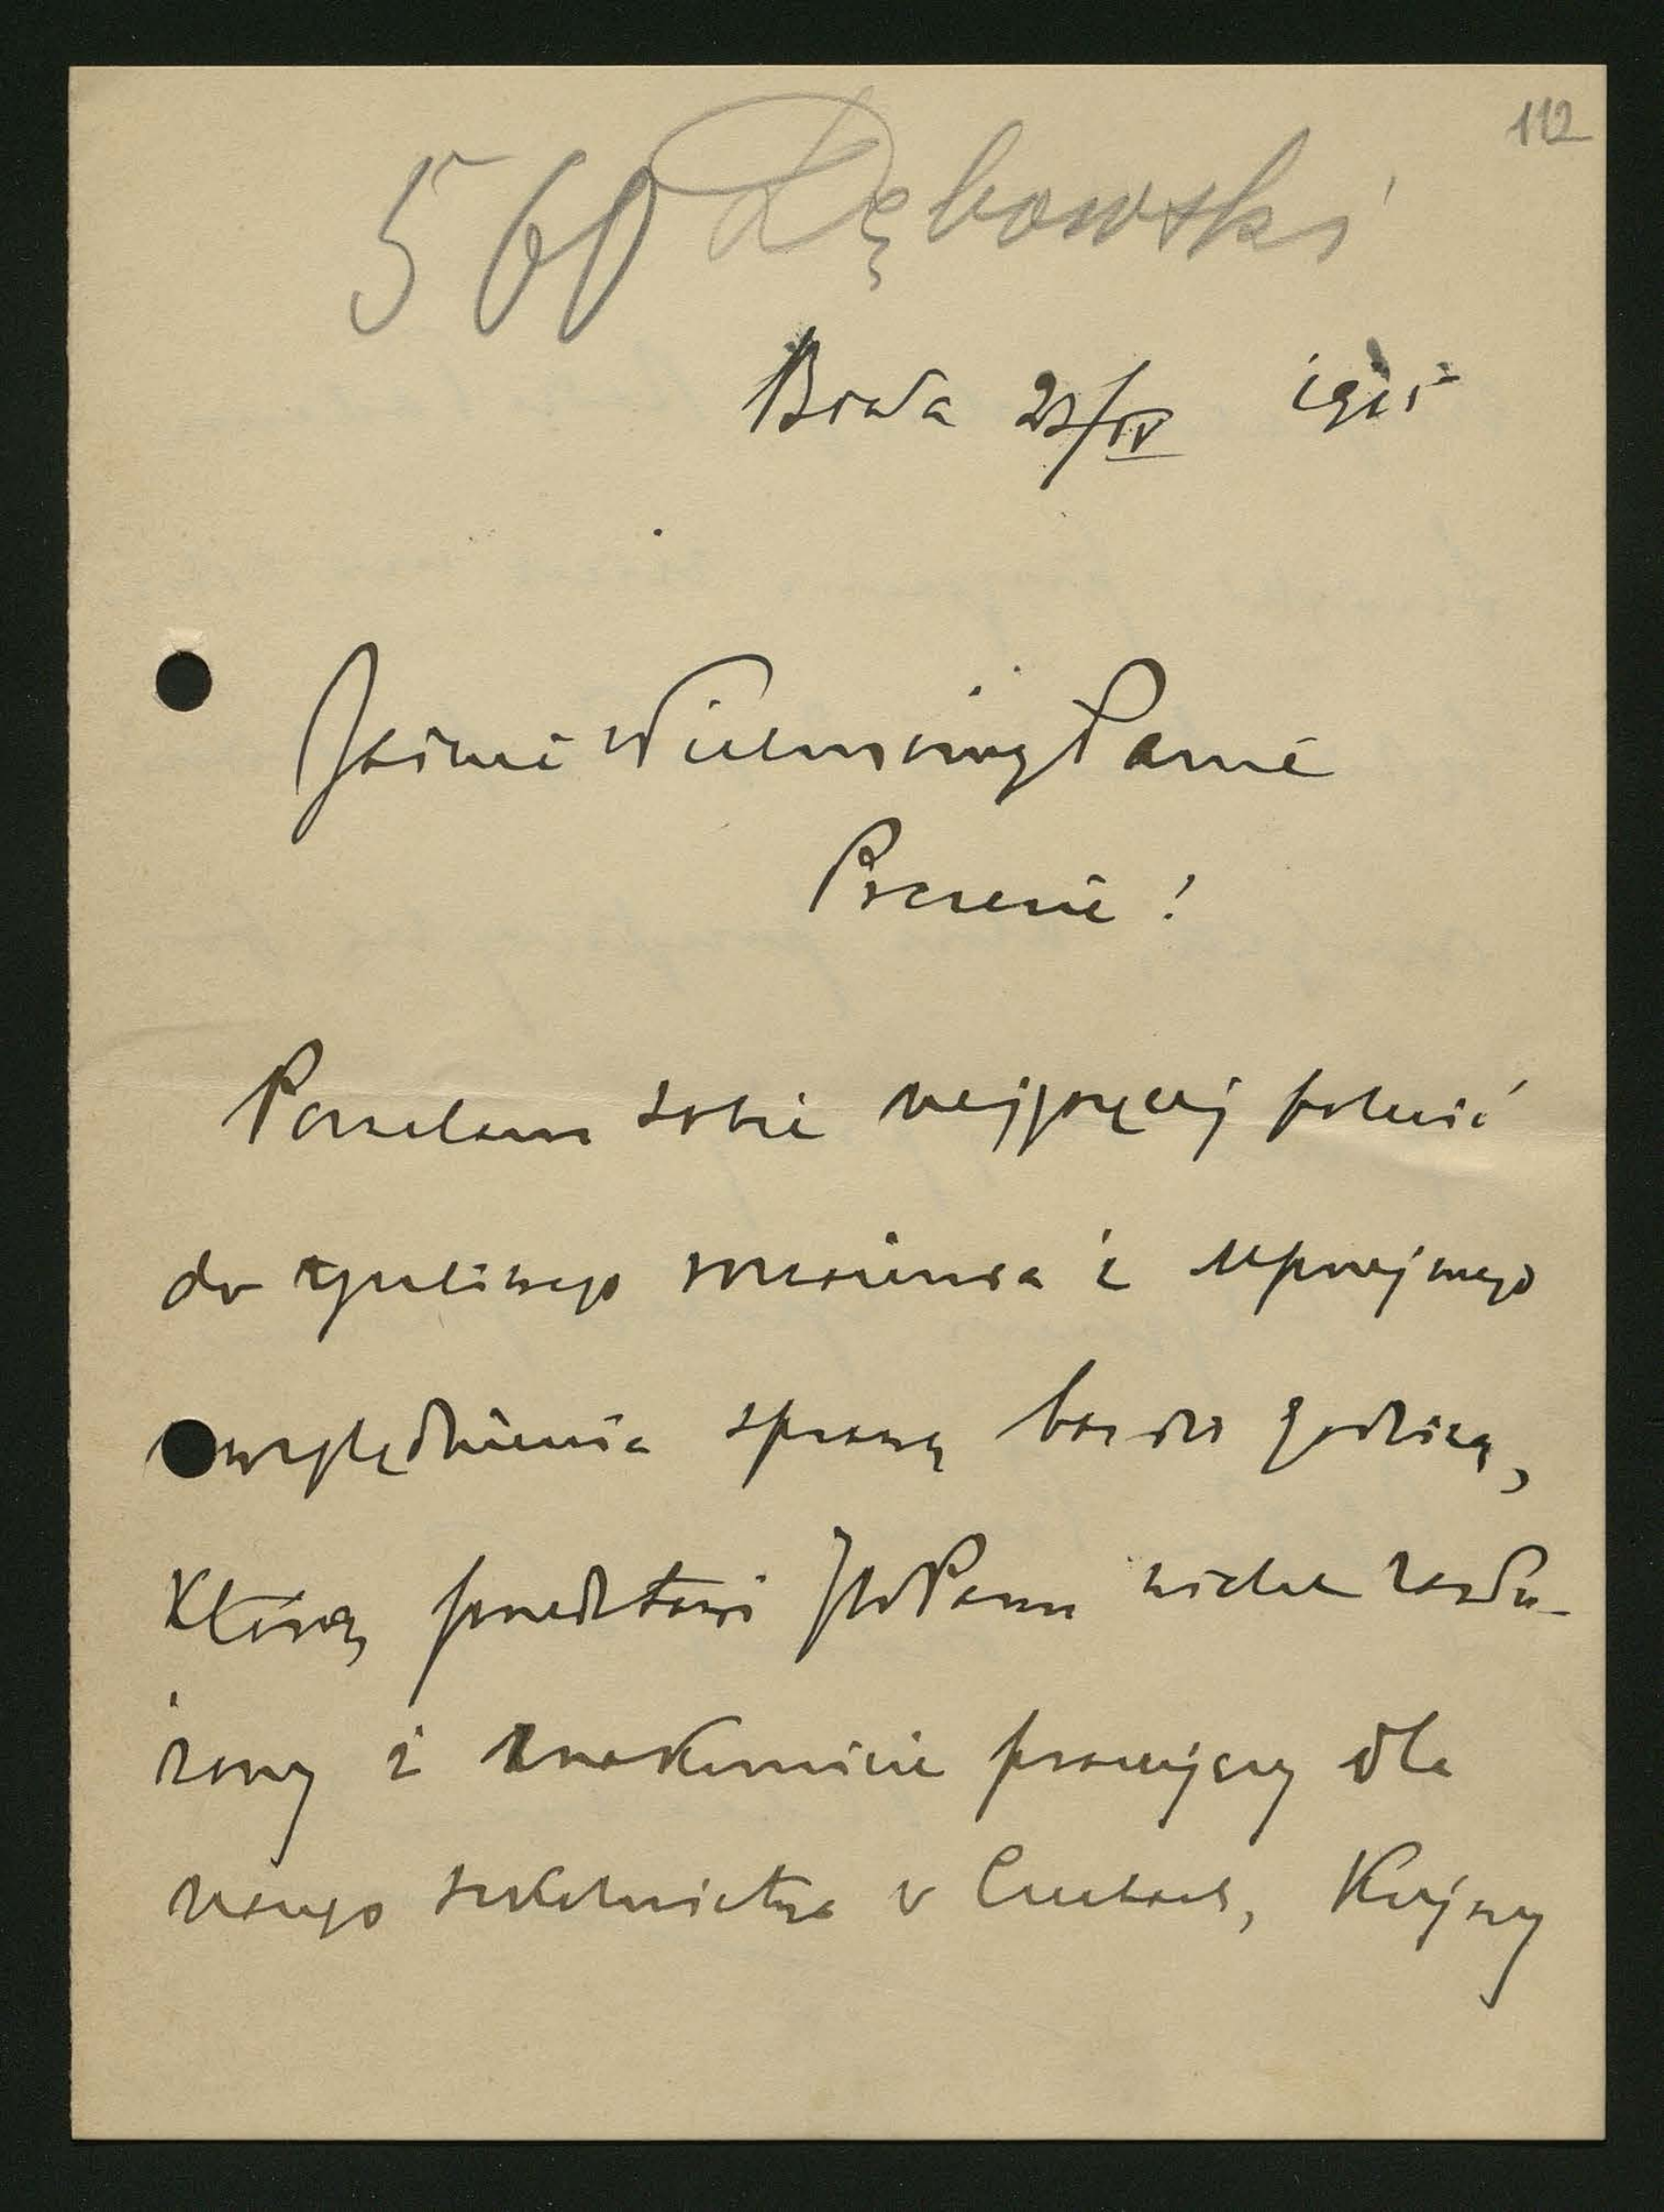 112
560 Dębowski
Biała 23/IV 1915
Jaśnie Wielmożny Panie
Prezesie!
Pozwalam sobie najgoręcej polecić
do życzliwego rozważenia i uprzejmego
uwzględnienia sprawę bardzo godziwą,
którą przedstawi JWPanu wielce zasłu-
żony i znakomicie pracujący dla
naszego szkolnictwa w Czechach, Księży